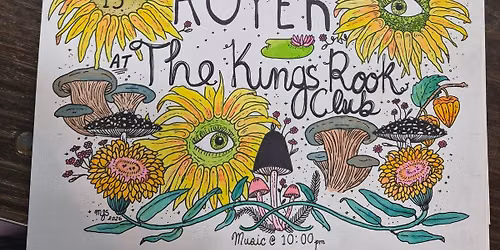 13
ROYER
AT The Kings Rook
Club
mgs
Music @ 10:00 pm